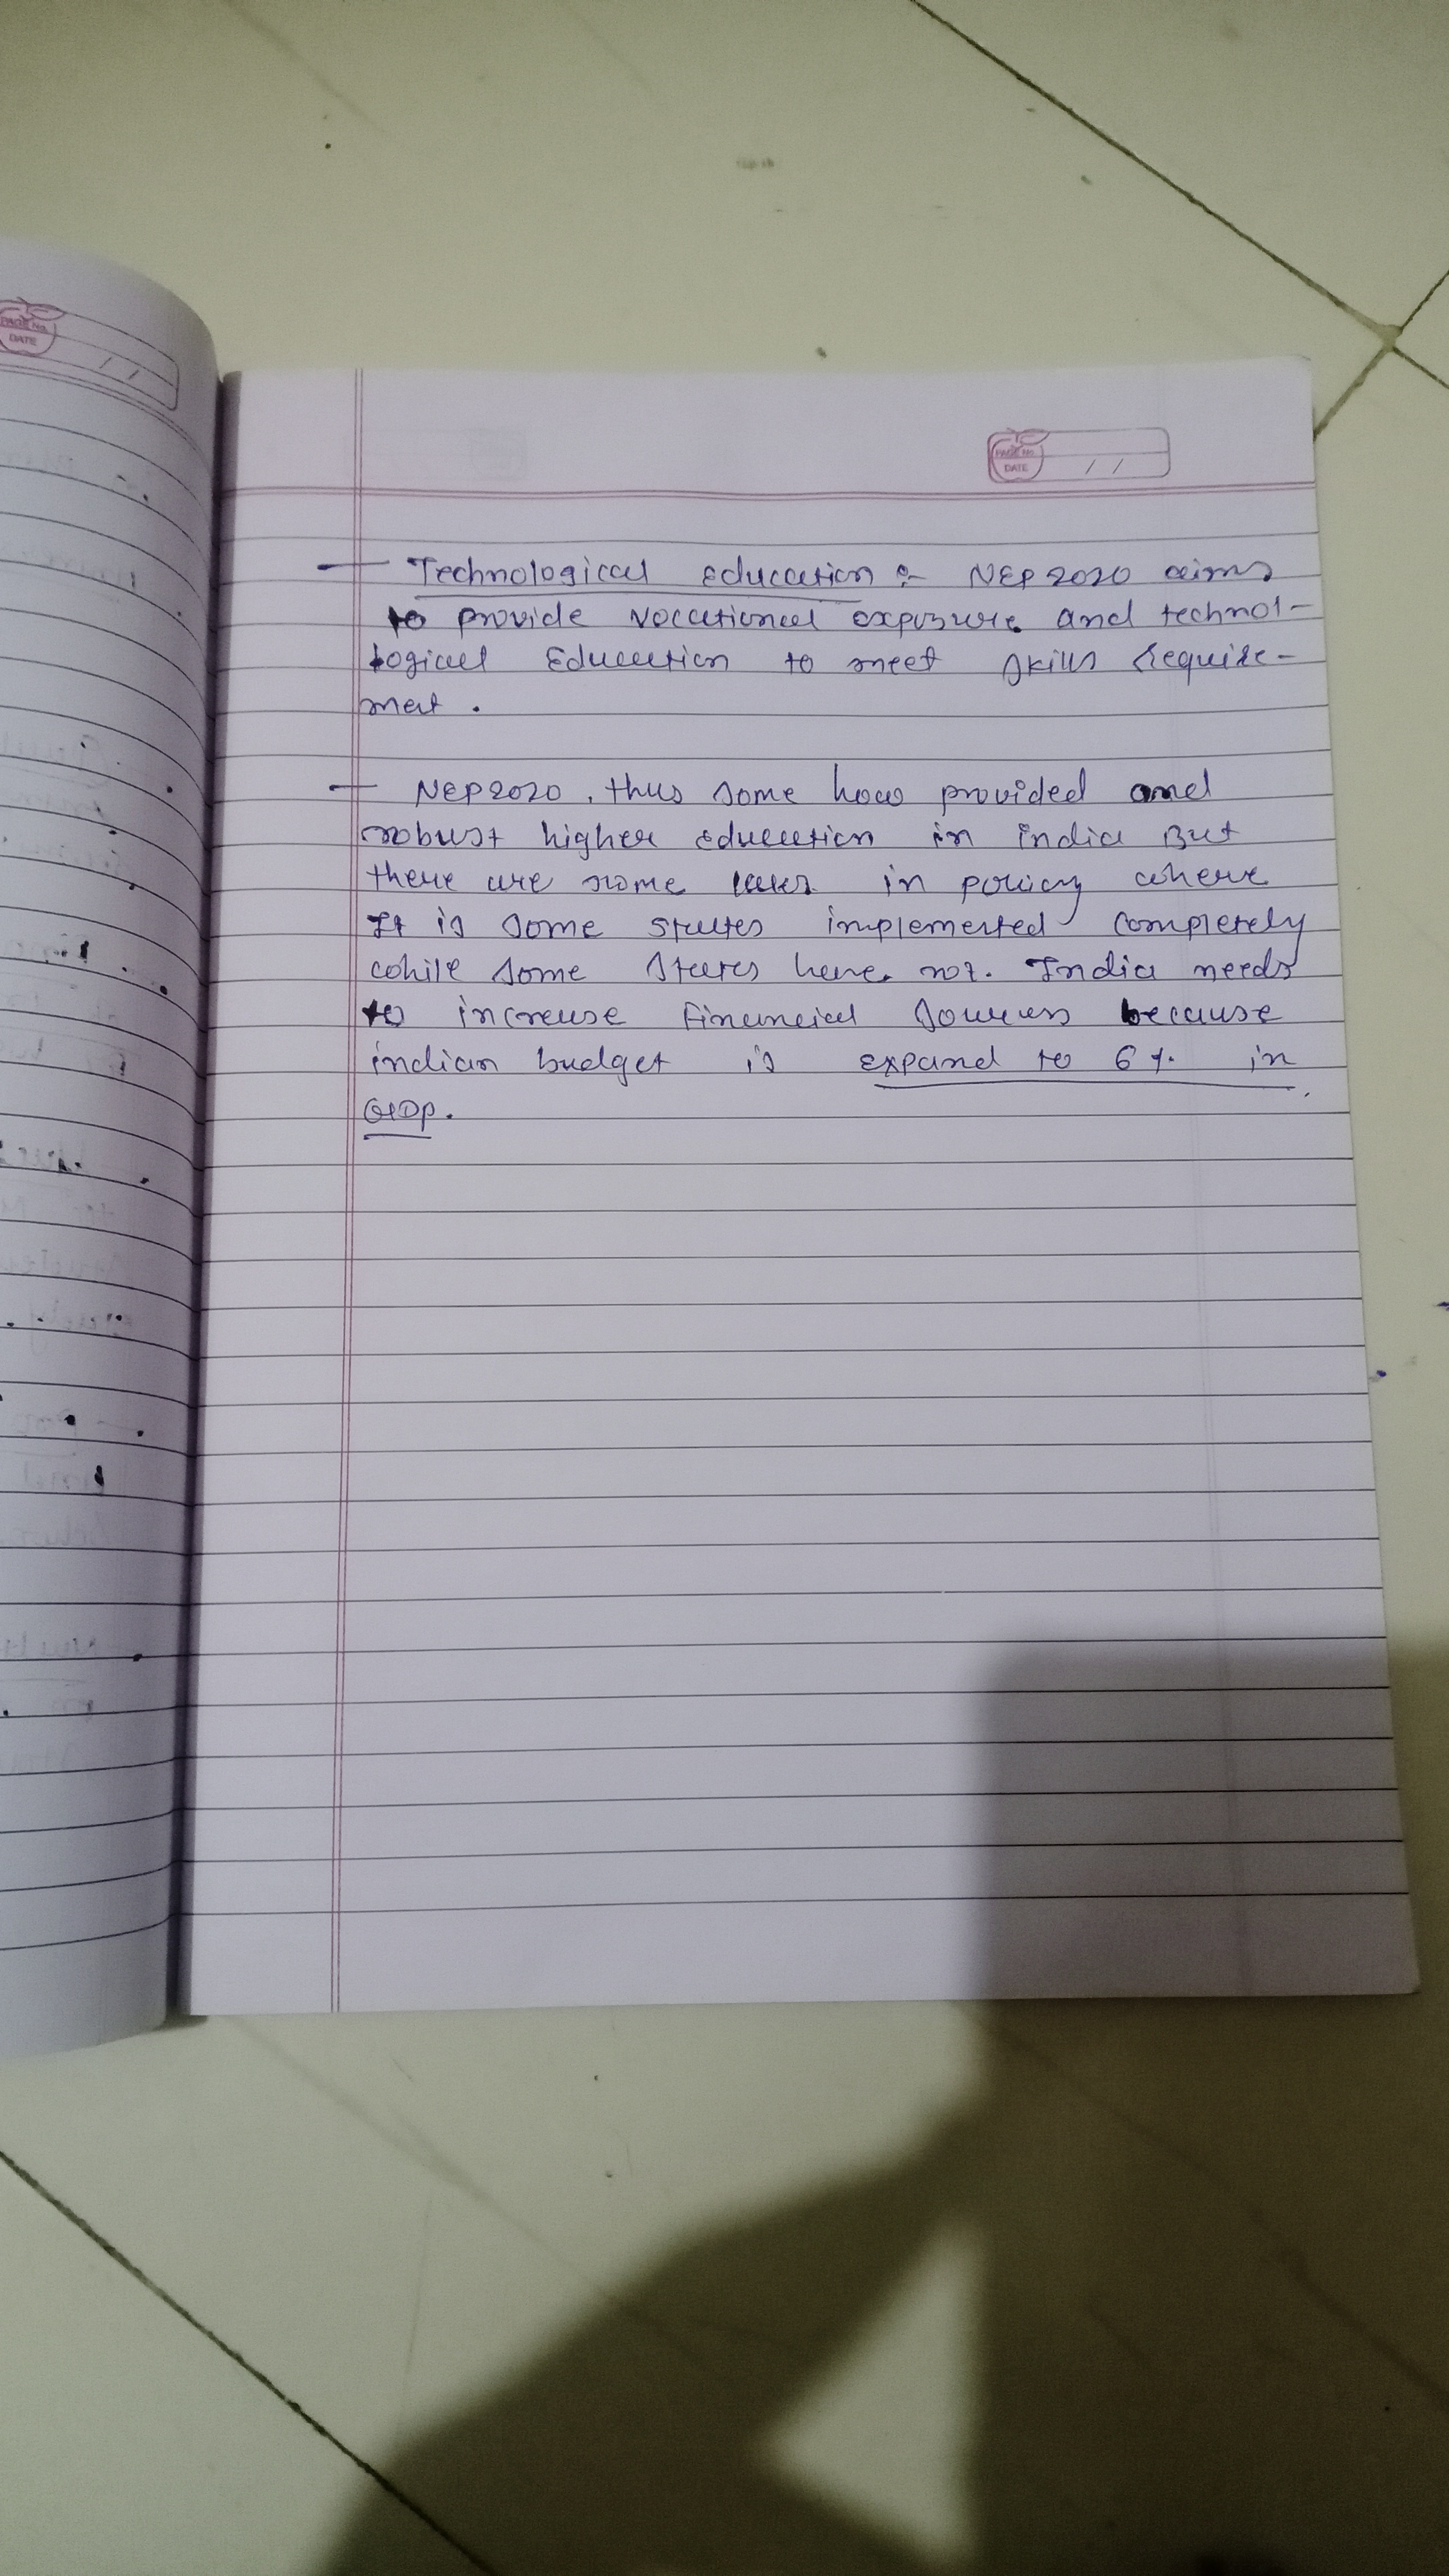 PAGE No.
DATE / /
PAGE No.
DATE / /
— Technological education :- NEP 2020 aims
to provide vocational exposure and technol-
logical Education to meet skills require-
ment .
— NEP2020 , thus some how provided and
robust higher education in india But
there are some in policy where
It is some states implemented completely
while some states have not. India needs
to increase financial sources because
indian budget is expand to 6% in
GDP.